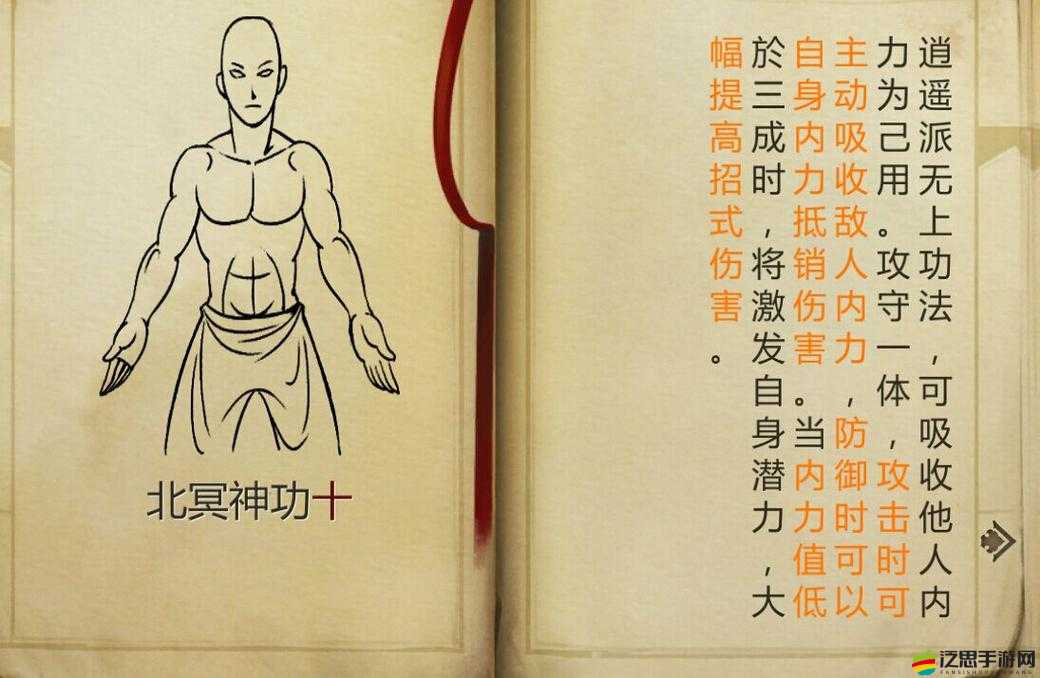 逍遥派无上功法，可吸收他人内
力为己用。攻守一体，攻击时可
主动吸收敌人内力，防御时可以
自身内力抵销伤害。当内力值低
於三成时，将激发自身潜力，大
幅提高招式伤害。
北冥神功十
泛思手游网
FANSISHOUYOUWANG